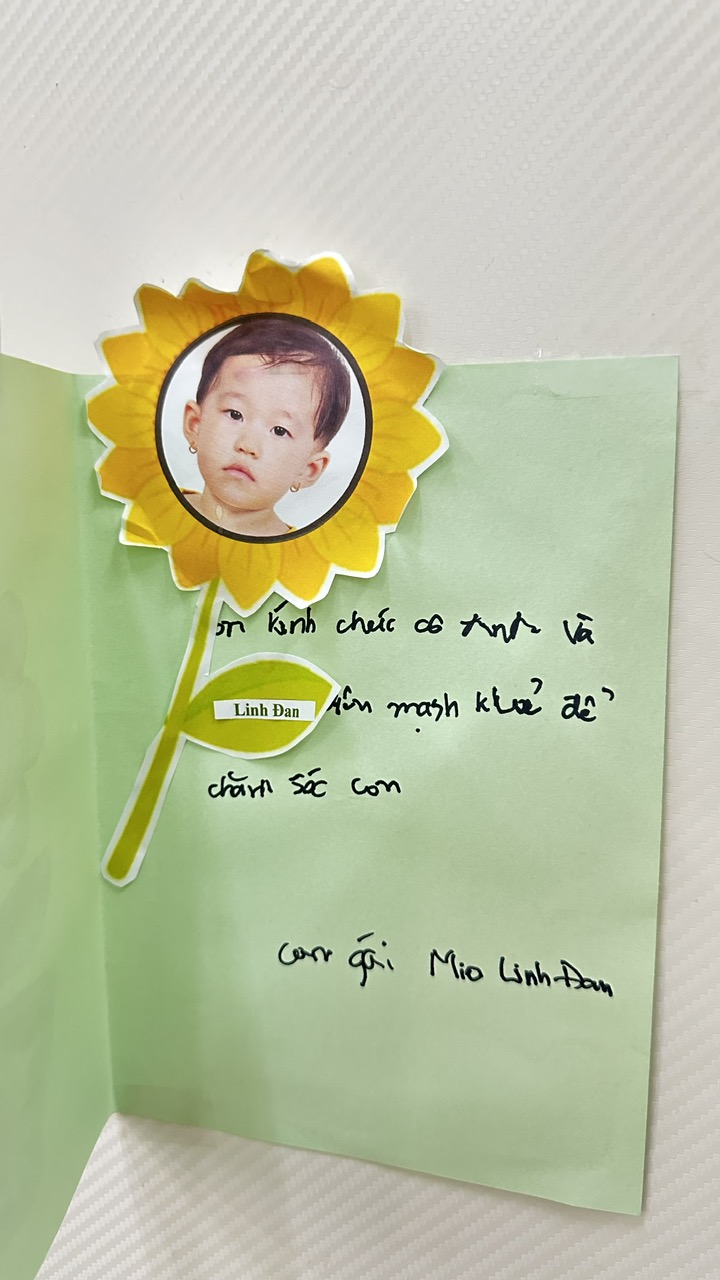 kính chúc cô Anh và
Linh Đan
mạnh khoẻ để
chăm sóc con
con gái Mio Linh Đan